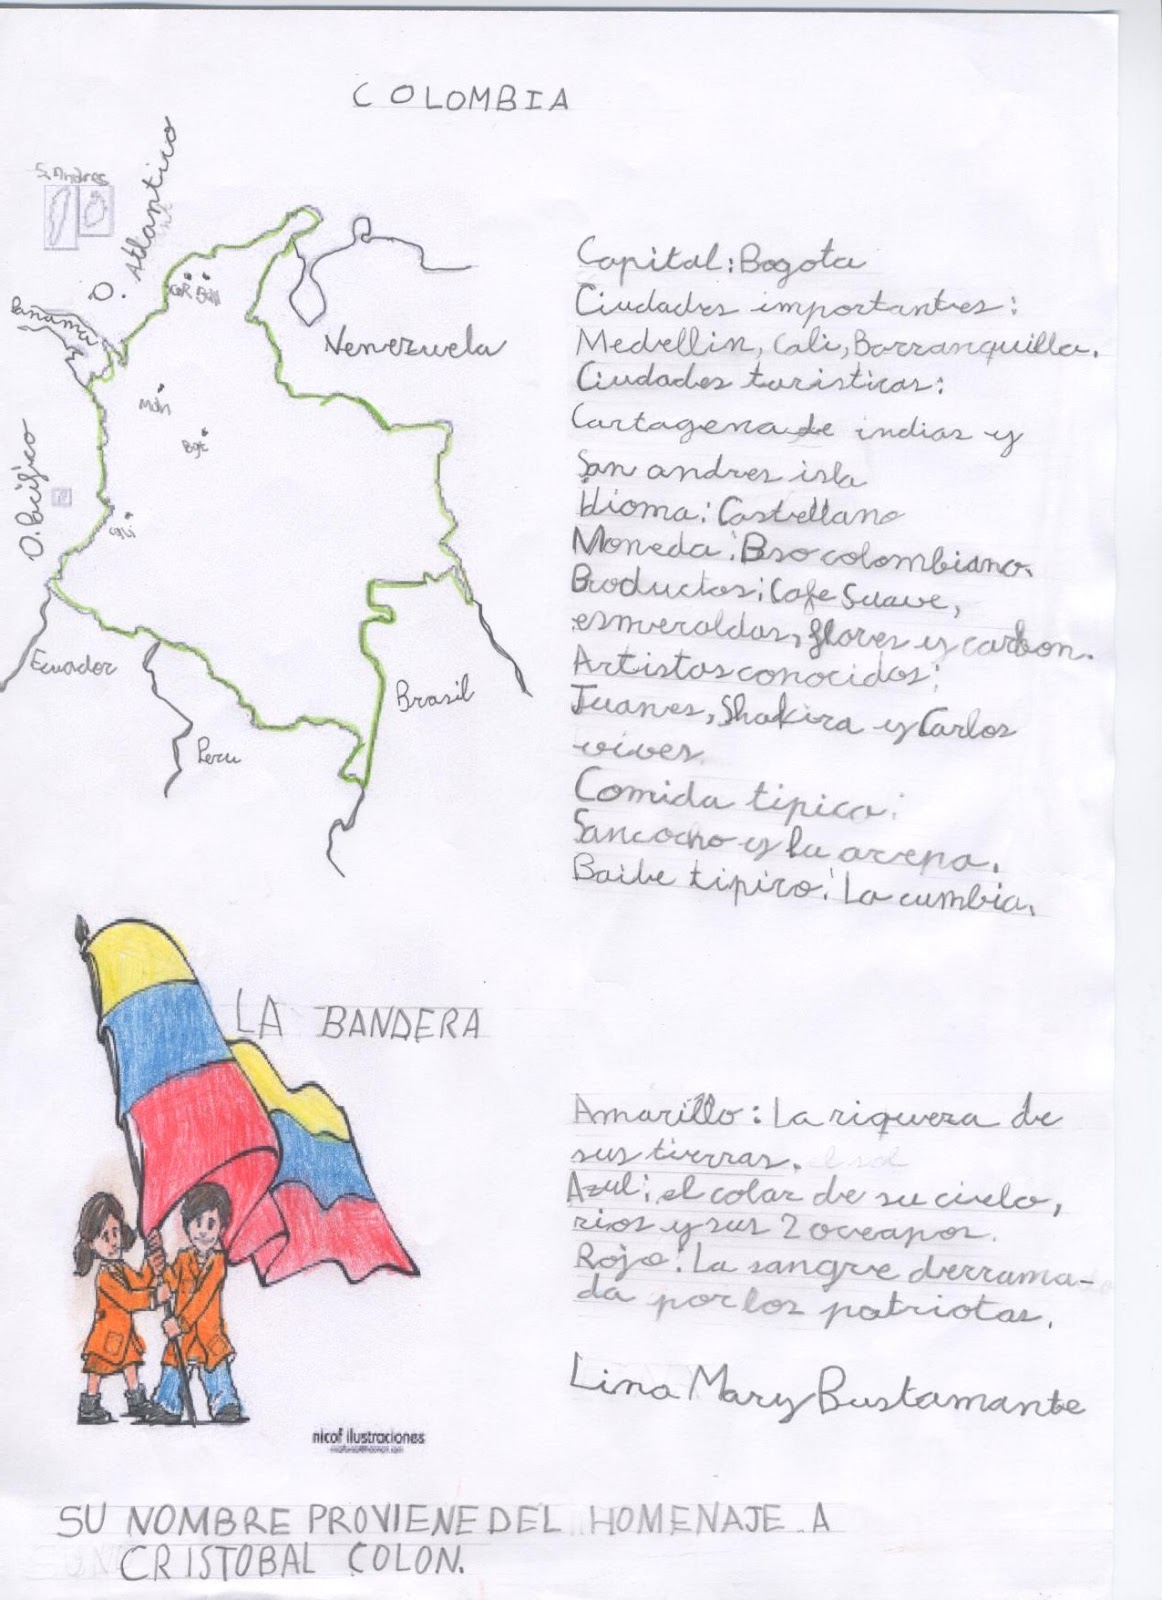 COLOMBIA
S. Andres
O. Atlantico
Panama
CaR Ball
Venezuela
Mdn
Bgt
O. Pacifico
Cali
Ecuador
Peru
Brasil
Capital: Bogota
Ciudades importantes:
Medellin, Cali, Barranquilla.
Ciudades turisticas:
Cartagena de indias y
San andres isla
Idioma: Castellano
Moneda: Peso colombiano.
Productos: Cafe Suave,
esmeraldas, flores y carbon.
Artistas conocidos:
Juanes, Shakira y Carlos
vives.
Comida tipica:
Sancocho y la arepa.
Baile tipico: La cumbia.
LA BANDERA
Amarillo: La riqueza de
sus tierras. el sol
Azul: el color de su cielo,
rios y sus 2 oceanos.
Rojo: La sangre derrama-
da por los patriotas.
Lina Mary Bustamante
nicof ilustraciones
SU NOMBRE PROVIENE DEL HOMENAJE A
CRISTOBAL COLON.